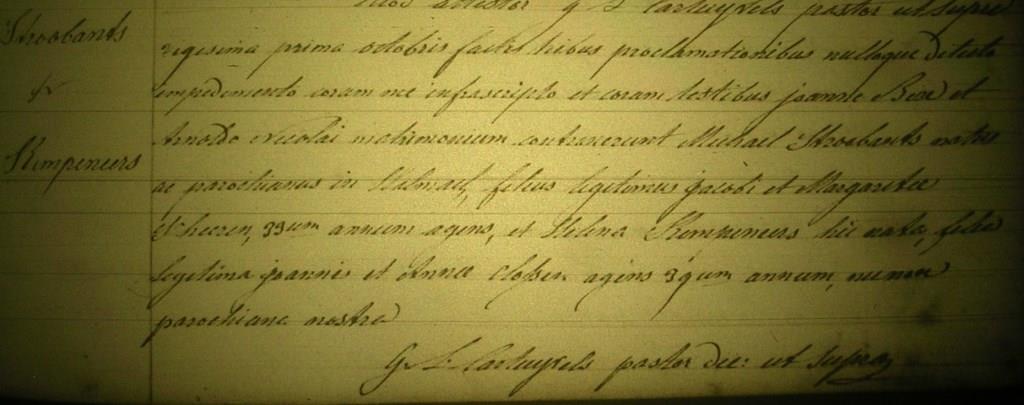 quos attestor G L Cartuyvels pastor ut supra
Stroobants
&
Kempeneers
vigesima prima octobris factis tribus proclamationibus nulloque detecto
impedimento coram me infrascripto et coram testibus joanne Bex et
Arnoldo Nicolai matrimonium contraxerunt Michael Stroobants natus
ac parochianus in Hilmael, filius legitimus jacobi et Margaritae
33um annum agens, et Helena Kempeneers hic nata, filia
legitima joannis et Annae Classen agens 39um annum, nec non
parochiana nostra
G L Cartuyvels pastor dec: ut supra